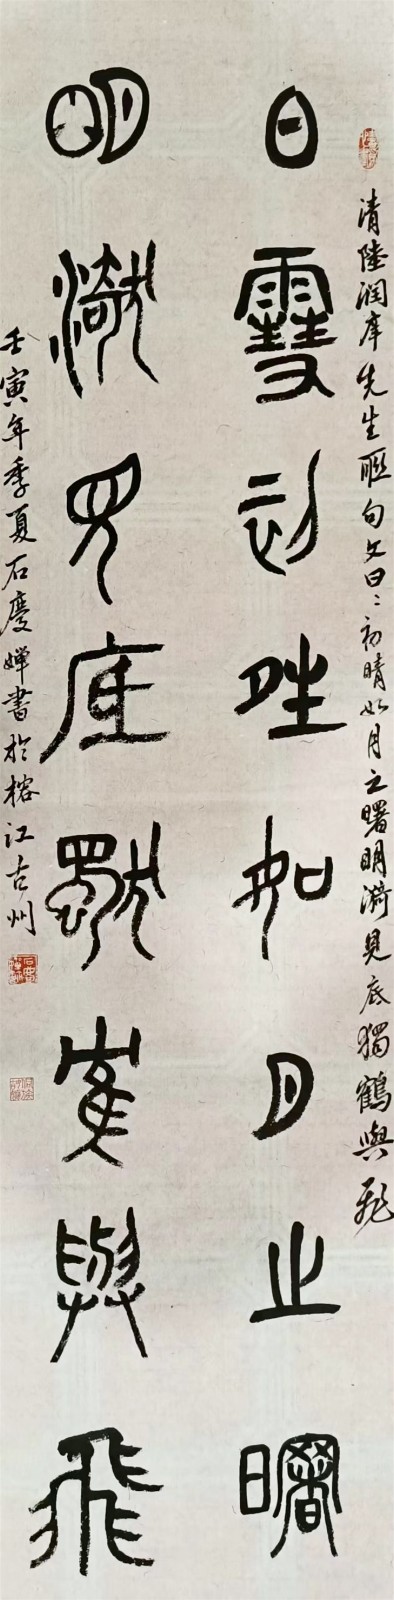 清陸润庠先生聯句文曰〻初晴如月之曙明漪見底獨鶴與飛
日雪初晴如月之曙
明漪見底獨鶴與飛
壬寅年季夏石慶嬋書於榕江古州